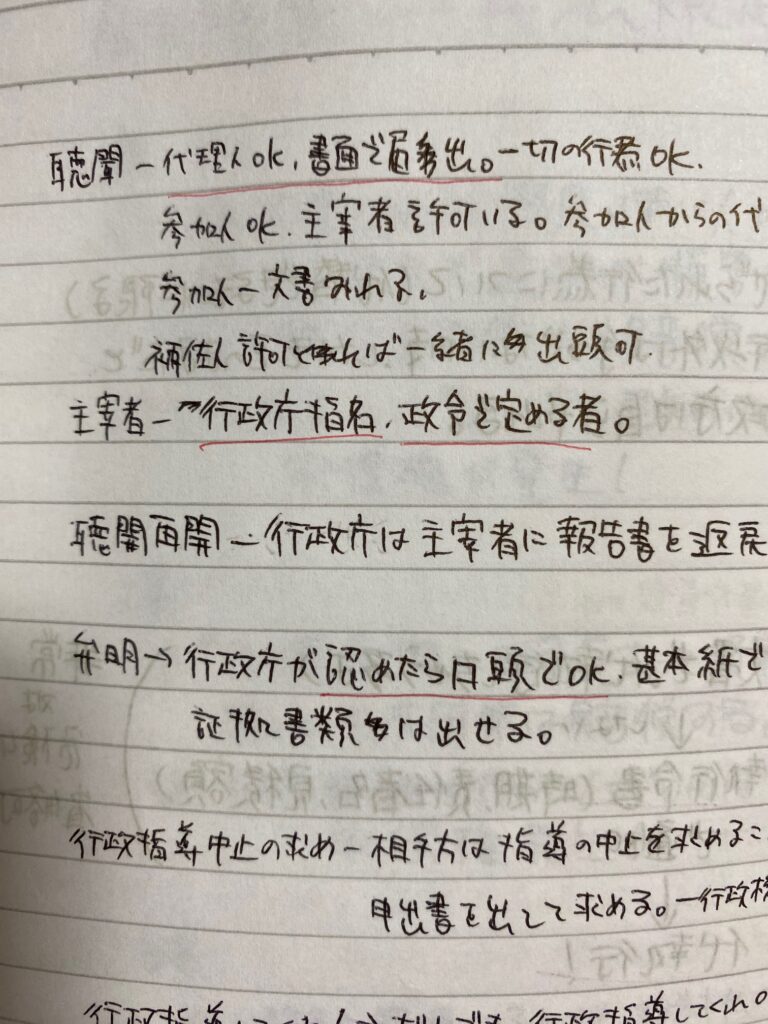 聴聞ー代理人OK、書面で届け出。一切の行為OK.
参加人OK. 主宰者許可いる。参加人からの代
参加人ー文書みれる。
補佐人許可とれば一緒に出頭可.
主宰者ー行政庁指名、政令で定める者。
聴聞再開ー行政庁は主宰者に報告書を返戻
弁明→行政庁が認めたら口頭でOK. 基本紙で
証拠書類は出せる。
行政指導中止の求めー相手方は指導の中止を求めるこ
申出書を出して求める。ー行政機
行政指導してくれ。